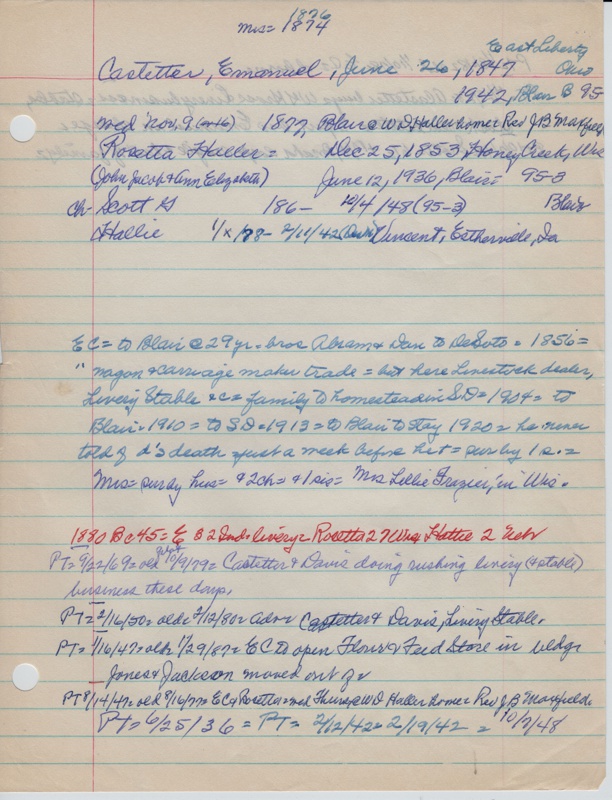 1876
Mrs = 1874
East Liberty
Castetter, Emanuel, June 26, 1847 Ohio
1942, Blair 95
med Nov. 9 (or 16) 1877, Blair @ W D Haller home Rev J.B. Maxfield
Rosetta Haller = Dec 25, 1853, Honey Creek, Wis
(John Jacob & Ann Elizabeth) June 12, 1936, Blair = 95-3
ch - Scott G 186- 10/4/48 (95-3) Blair
Hallie 1/x/78 - 2/11/42 Vincent, Estherville, Ia
EC = to Blair @ 29 yr = bros Abram & Dan to DeSoto = 1856 =
" wagon & carriage maker trade = but here Livestock dealer,
Livery Stable &c = family to homestead in S.D = 1904 = to
Blair = 1910 = to S.D = 1913 = to Blair to Stay 1920 = he never
told of d's death just a week before his = surv by 1 s. =
Mrs = surv by hus = & 2 ch = & 1 sis = Mrs Lillie Frazier, in Wis.
1880 B c 45 = E 32 Ind = livery = Rosetta 27 Wis Hattie 2 Neb
PT = 9/22/69 = old 10/9/79 = Castetter & Davis doing rushing livery (& stable)
business these days.
PT = 2/16/50 = old = 2/12/80 = adv = Castetter & Davis, Livery Stable.
PT = 1/16/47 = old = 1/29/87 = EC to open Flour & Feed Store in bldg
Jones & Jackson moved out of =
PT 8/14/47 = old 9/16/77 = EC & Rosetta = med Thurs @ W D Haller home = Rev J.B Maxfield =
PT = 6/25/36 = PT = 2/12/42 = 2/19/42 = 10/7/48